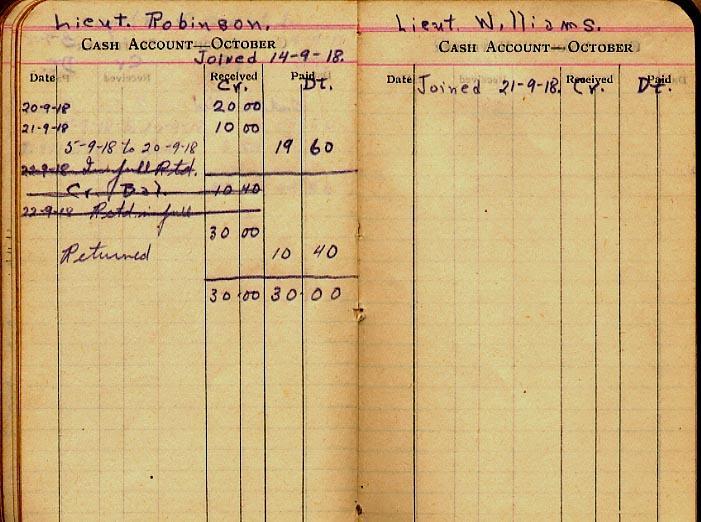 Lieut. Robinson.
CASH ACCOUNT—OCTOBER
Joined 14-9-18.
Date Received Paid
Cr. Dt.
20-9-18 20 00
21-9-18 10 00
5-9-18 to 20-9-18 19 60
22-9-18 In full Rtd.
Cr. Bal. 10 40
22-9-18 Retd in full
30 00
Returned 10 40
30.00 30.00
Lieut. Williams.
CASH ACCOUNT—OCTOBER
Date Received Paid
Joined 21-9-18. Cr. Dt.